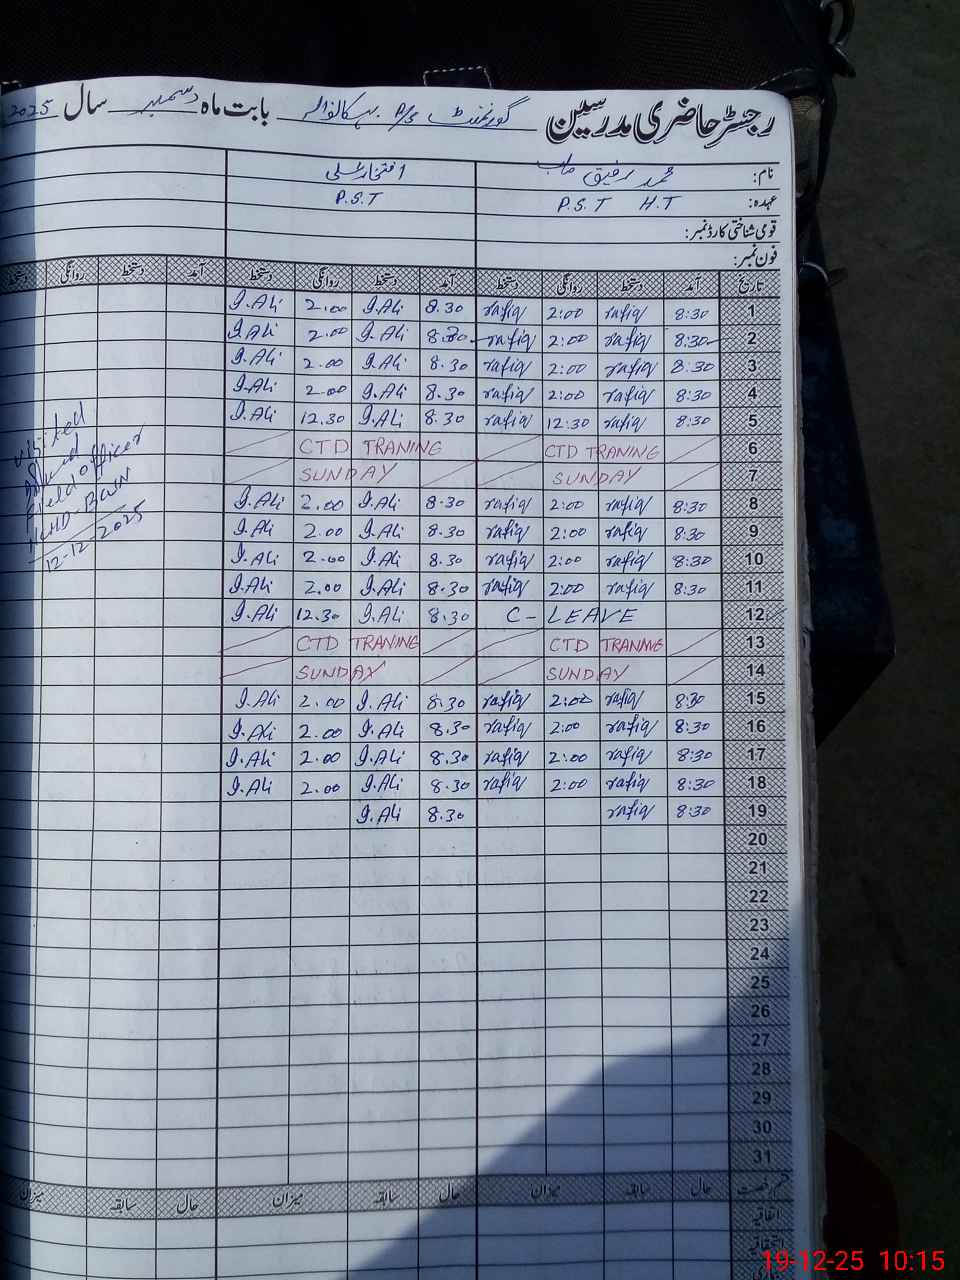 رجسٹر حاضری مدرسین گورنمنٹ P/S بابت ماہ دسمبر سال 2025
نام: محمد رفیق صاحب افتخار علی
عہدہ: P.S.T H.T P.S.T
قومی شناختی کارڈ نمبر:
فون نمبر:
تاریخ آمد دستخط روانگی دستخط آمد دستخط روانگی دستخط آمد دستخط روانگی دستخط
1 8:30 rafiq 2:00 rafiq 8.30 I.Ali 2.00 I.Ali
2 8:30 rafiq 2:00 rafiq 8.30 I.Ali 2.00 I.Ali
3 8:30 rafiq 2:00 rafiq 8.30 I.Ali 2.00 I.Ali
4 8:30 rafiq 2:00 rafiq 8.30 I.Ali 2.00 I.Ali
5 8:30 rafiq 12:30 rafiq 8.30 I.Ali 12.30 I.Ali
6 CTD TRANING CTD TRANING
7 SUNDAY SUNDAY
8 8:30 rafiq 2:00 rafiq 8.30 I.Ali 2.00 I.Ali
9 8:30 rafiq 2:00 rafiq 8.30 I.Ali 2.00 I.Ali
10 8:30 rafiq 2:00 rafiq 8.30 I.Ali 2.00 I.Ali
11 8:30 rafiq 2:00 rafiq 8.30 I.Ali 2.00 I.Ali
12 C- LEAVE 8.30 I.Ali 12.30 I.Ali
13 CTD TRANING CTD TRANING
14 SUNDAY SUNDAY
15 8:30 rafiq 2:00 rafiq 8.30 I.Ali 2.00 I.Ali
16 8:30 rafiq 2:00 rafiq 8.30 I.Ali 2.00 I.Ali
17 8:30 rafiq 2:00 rafiq 8.30 I.Ali 2.00 I.Ali
18 8:30 rafiq 2:00 rafiq 8.30 I.Ali 2.00 I.Ali
19 8:30 rafiq 8.30 I.Ali
20
21
22
23
24
25
26
27
28
29
30
31
قسم رخصت حال سابقہ میزان حال سابقہ میزان حال سابقہ میزان
اتفاقیہ
استحقاقیہ
visited
Field officer
NCHD-BWN
12-12-2025
19-12-25 10:15